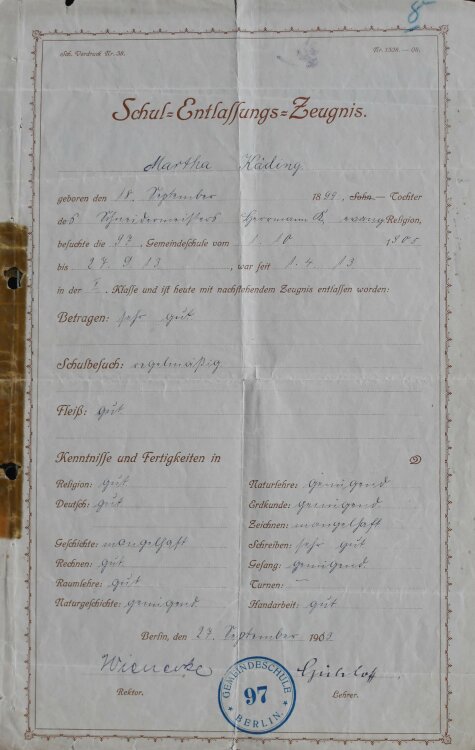 8
Sch. Vordruck Nr. 38.
Nr. 1328. — 08.
Schul-Entlassungs-Zeugnis.
Martha Käding
geboren den 18. September 1899, Sohn — Tochter
des Schneidermeisters Herrmann K. evang Religion,
besuchte die 97. Gemeindeschule vom 1. 10 1905
bis 27. 9 13, war seit 1. 4. 13
in der I. Klasse und ist heute mit nachstehendem Zeugnis entlassen worden:
Betragen: sehr gut
Schulbesuch: regelmäßig
Fleiß: gut
Kenntnisse und Fertigkeiten in
Religion: gut
Deutsch: gut
Geschichte: mangelhaft
Rechnen: gut
Raumlehre: gut
Naturgeschichte: genügend
Naturlehre: genügend
Erdkunde: genügend
Zeichnen: mangelhaft
Schreiben: sehr gut
Gesang: genügend
Turnen: —
Handarbeit: gut
Berlin, den 27. September 19
Wienecke
Rektor.
Lehrer.
GEMEINDESCHULE
97
BERLIN.